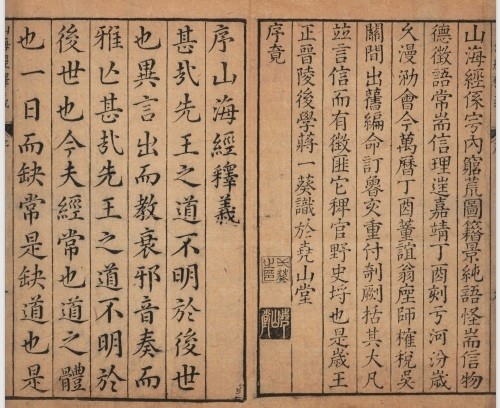 山海經係宇內窮荒圖籍景純語怪耑信物
德徵語常耑信理迷嘉靖丁酉刻亏河汾歲
久漫泐會今萬曆丁酉董誼翁座師榷稅吳
關間出舊編命訂魯亥重付剞劂括其大凡
竝言信而有徵匪它稗官野史埒也是歲王
正晉陵後學蔣一葵識於堯山堂
序竟
序山海經釋義
甚哉先王之道不明於後世
也異言出而教衰邪音奏而
雅亾甚哉先王之道不明於
後世也今夫經常也道之體
也一日而缺常是缺道也是